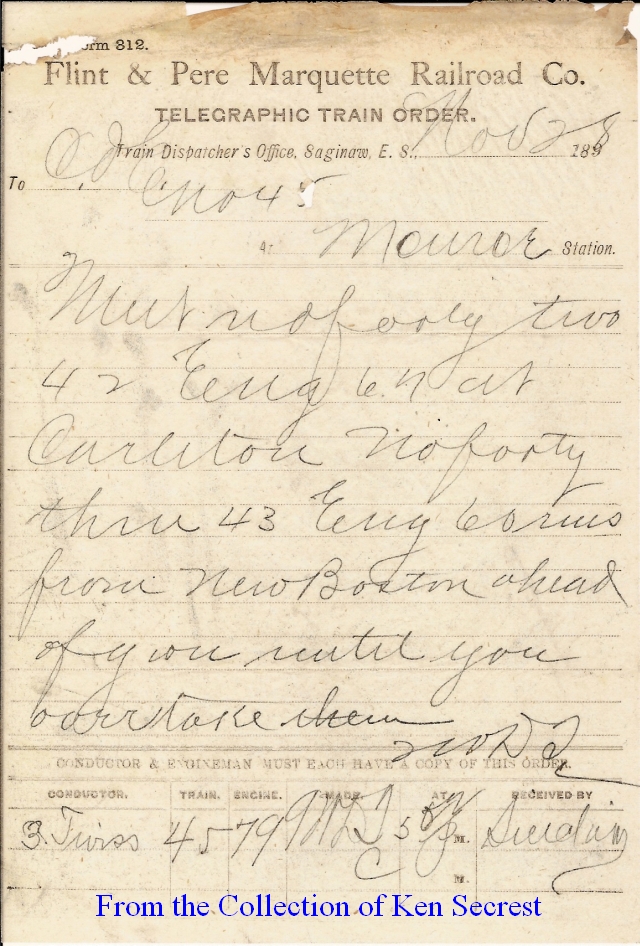 orm 312.
Flint & Pere Marquette Railroad Co.
TELEGRAPHIC TRAIN ORDER.
Train Dispatcher's Office, Saginaw, E. S., Nov 28 189
To C & E No 45
At Monroe Station.
Meet no forty two
42 Eng 67 at
Carleton No forty
three 43 Eng 60 runs
from New Boston ahead
of you until you
overtake them
WDT
CONDUCTOR & ENGINEMAN MUST EACH HAVE A COPY OF THIS ORDER.
CONDUCTOR. TRAIN. ENGINE. MADE. AT RECEIVED BY
Twiss 45 79 M.
M.
From the Collection of Ken Secrest